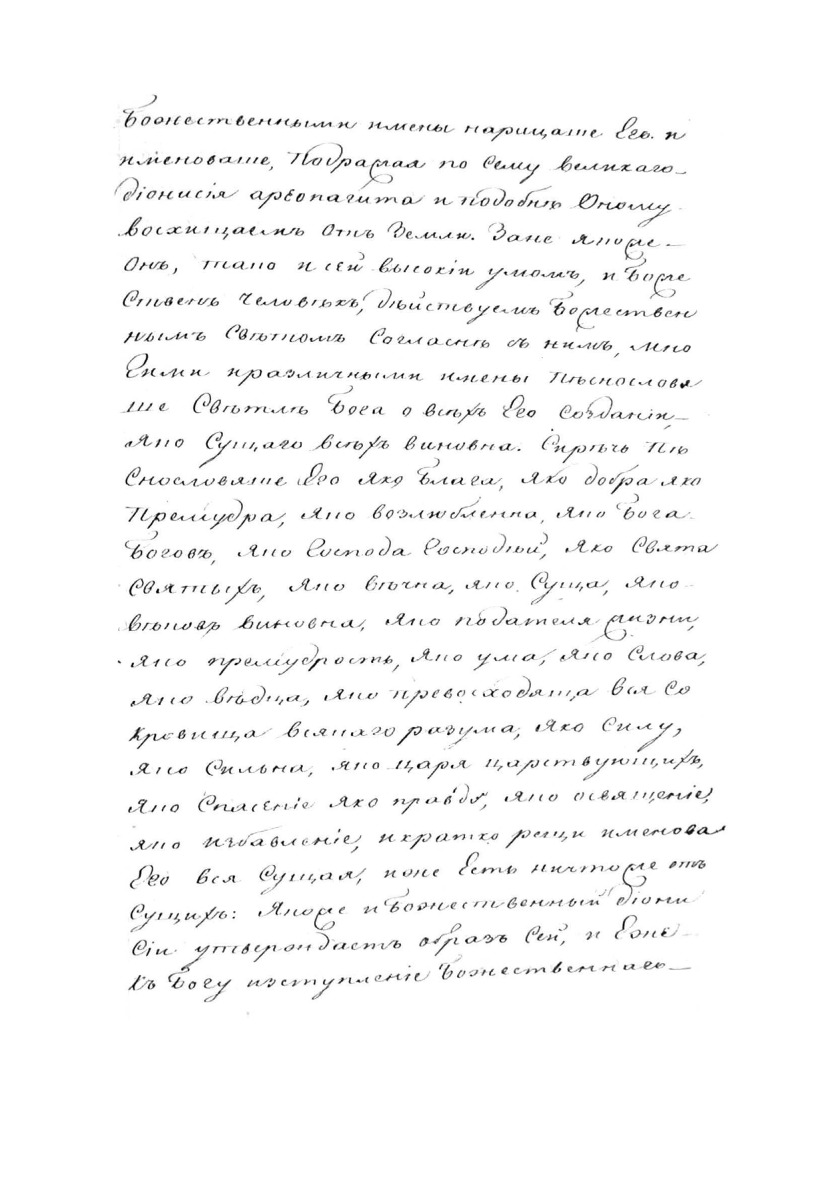 Божественными имены нарицаше Его. и
именоваше, Подражая по сему великаго
діонисія ареопагита и подобнѣ Оному
восхищаемъ отъ Земли. Зане якоже
Онъ, тако и сей высокій умомъ, и Боже
Ственъ человѣкъ, дѣйствуемъ Божествен
нымъ Свѣтомъ Согласнѣ съ нимъ, мно
Гими и различными имены Пѣснословя
ше Свѣтлѣ Бога о всѣхъ Его созданіи,
яко Сущаго всѣхъ виновна. Сирѣчь Пѣ
Снословяше Его яко Блага, яко добра яко
Премудра, яко возлюбленна, яко Бога
Боговъ, яко Господа Господѣй, яко Свята
Святыхъ, яко вѣчна, яко Суща, яко
вѣковъ виновна, яко подателя жизни,
яко премудрость, яко ума, яко Слова,
яко вѣдца, яко превосходяща вся Со
кровища всякаго разума, яко Силу,
яко Сильна, яко царя царствующихъ,
яко Спасеніе яко правду, яко освященіе,
яко избавленіе, и кратко рещи именова
Его вся Сущая, и не Есть ничтоже отъ
Сущихъ: Якоже и Божественный діони
Сій утверждаетъ образъ Сей, и Еже
къ Богу изступленіе Божественнаго